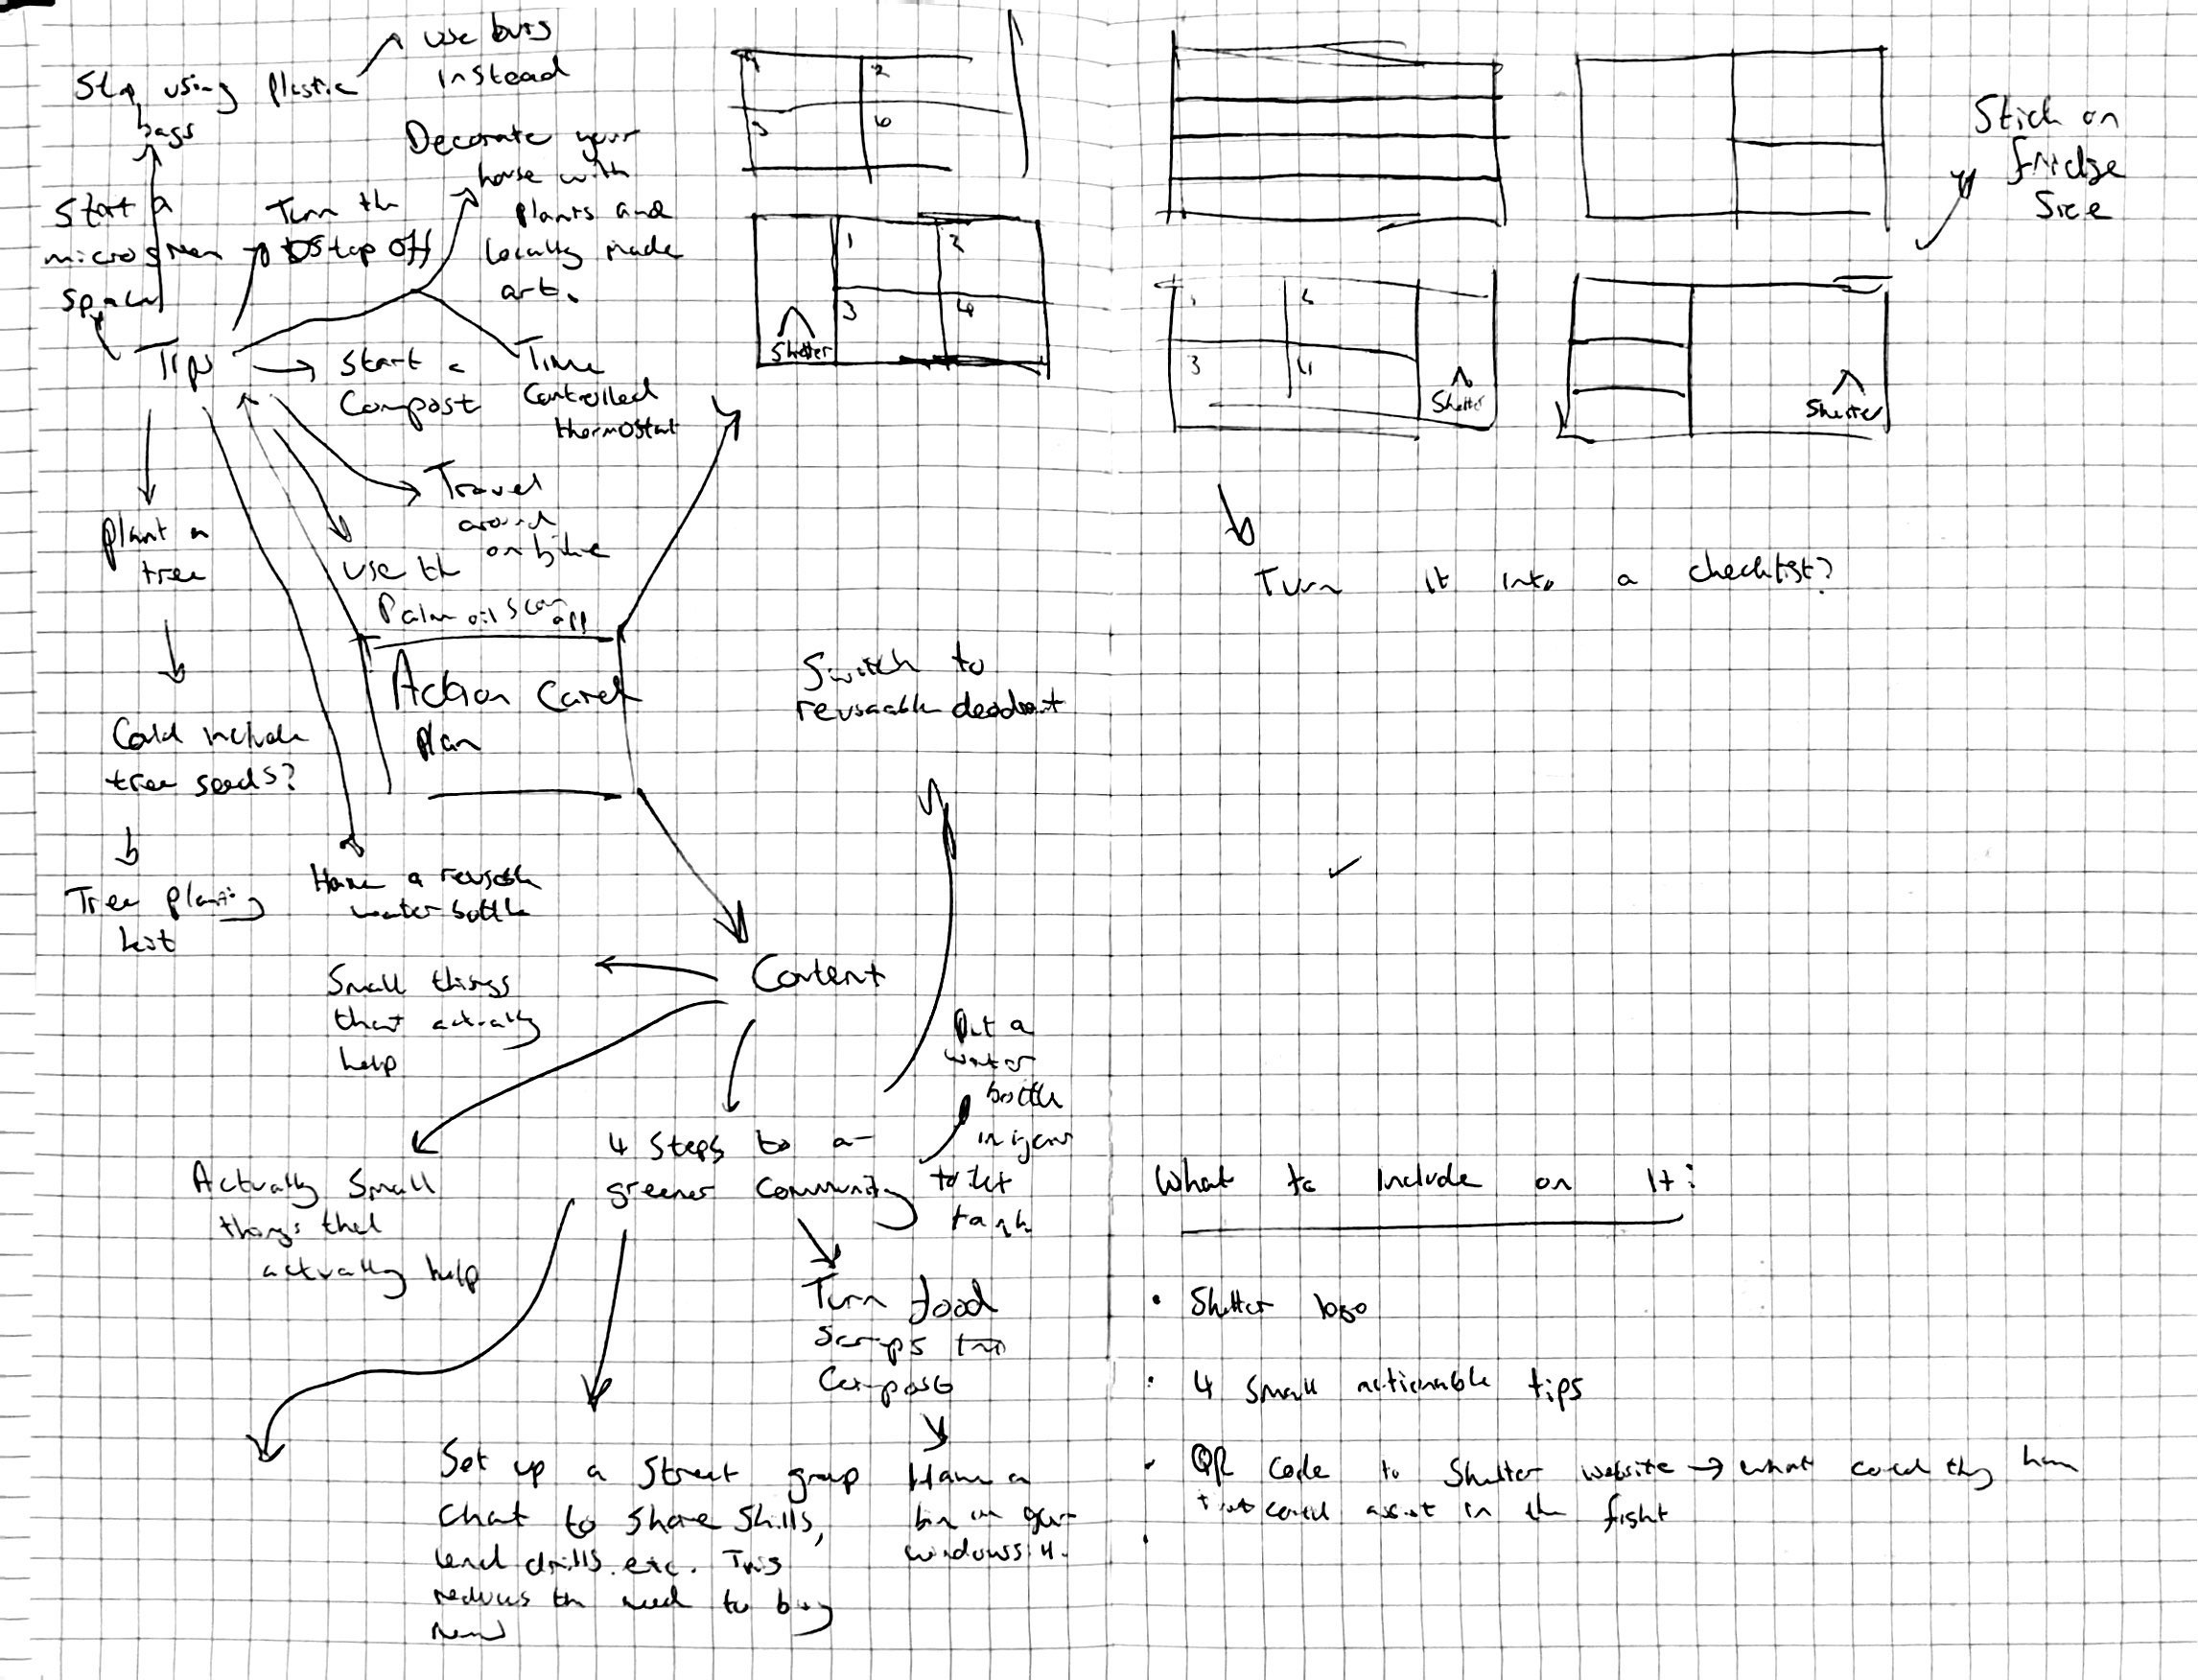 Stop using plastic
bags
use bags
instead
Decorate your
house with
plants and
locally made
art.
Start a
microgreen
space
Turn the
tap off
Tips
Start a
Compost
Time
Controlled
thermostat
Travel
around
on bike
use the
Palm oil scan
app
plant a
tree
Could include
tree seeds?
Tree planting
kit
Have a reusable
water bottle
Action Card
plan
1
2
3
4
1
2
3
4
Shelter
1
2
3
4
Shelter
Shelter
Stick on
fridge
Size
Turn it into a checklist?
Switch to
reusable deodorant
Content
Small things
that actually
help
Actually small
things that
actually help
4 steps to a
greener community
Put a
water
bottle
in your
toilet
tank
Turn food
scraps into
Compost
Have a
bin on your
windowsill.
Set up a street group
chat to share skills,
lend drills etc. This
reduces the need to buy
new
What to include on it:
• Shelter logo
• 4 small actionable tips
• QR code to Shelter website → what could they have
that could assist in the fight
•